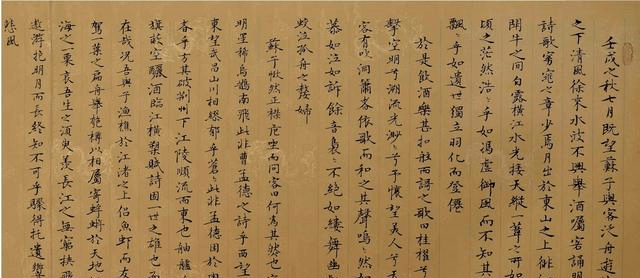 壬戌之秋七月既望蘇子與客泛舟遊
之下清風徐來水波不興舉酒屬客誦明
詩歌窈窕之章少焉月出於東山之上徘
鬪牛之间白露橫江水光接天縱一葦之所如
頃之茫然浩々乎如馮虛御風而不知其
飄々乎如遺世獨立羽化而登僊
於是飲酒樂甚扣舷而謌之歌曰桂櫂兮
擊空明兮溯流光渺々兮予懷望美人兮天
客有吹洞簫者依歌而和之其聲嗚々然如
慕如泣如訴餘音裊々不絕如縷舞幽
蛟泣孤舟之嫠婦
蘇子愀然正襟危坐而問客曰何為其然也客
明星稀烏鵲南飛此非曹孟德之詩乎西望
東望武昌山川相繆郁乎蒼々此非孟德困於周
者乎方其破荊州下江陵順流而東也舳艫
旗蔽空釃酒臨江橫槊賦詩固一世之雄也而
在哉况吾與子漁樵於江渚之上侶魚蝦而友
駕一葉之扁舟舉匏樽以相屬寄蜉蝣於天地
海之一粟哀吾生之須臾羨長江之無窮挾飛
遨游抱明月而長終知不可乎驟得托遺響
悲風